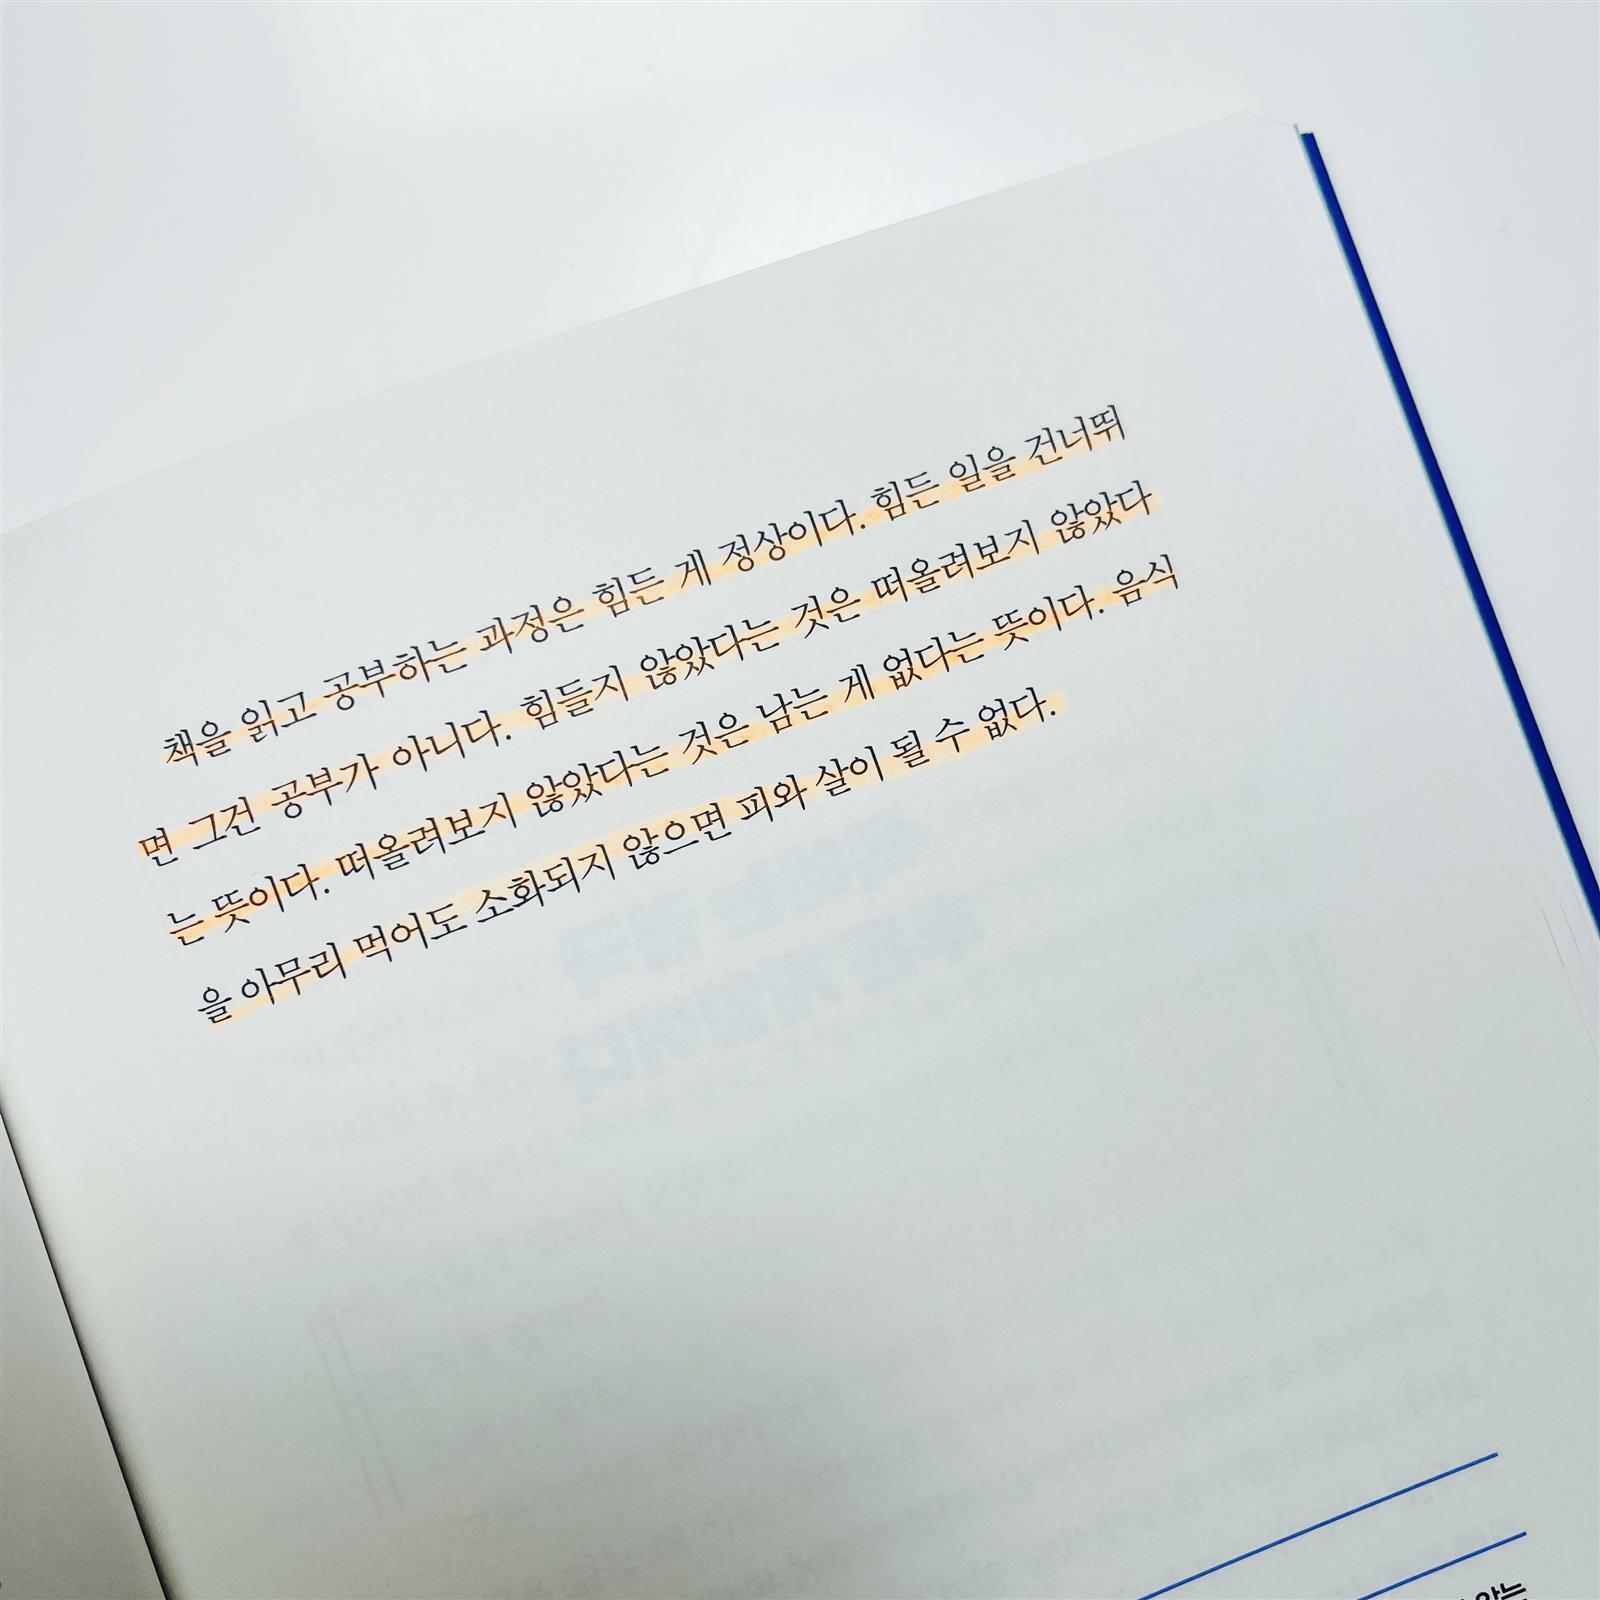 책을 읽고 공부하는 과정은 힘든 게 정상이다. 힘든 일을 건너뛰
면 그건 공부가 아니다. 힘들지 않았다는 것은 떠올려보지 않았다
는 뜻이다. 떠올려보지 않았다는 것은 남는 게 없다는 뜻이다. 음식
을 아무리 먹어도 소화되지 않으면 피와 살이 될 수 없다.